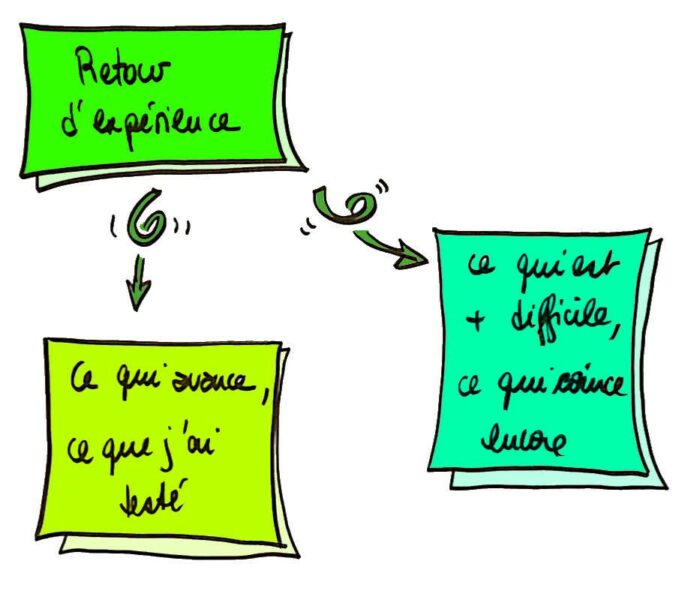 Retour
d'expérience
ce qui avance,
ce que j'ai
testé
ce qui est
+ difficile,
ce qui coince
encore